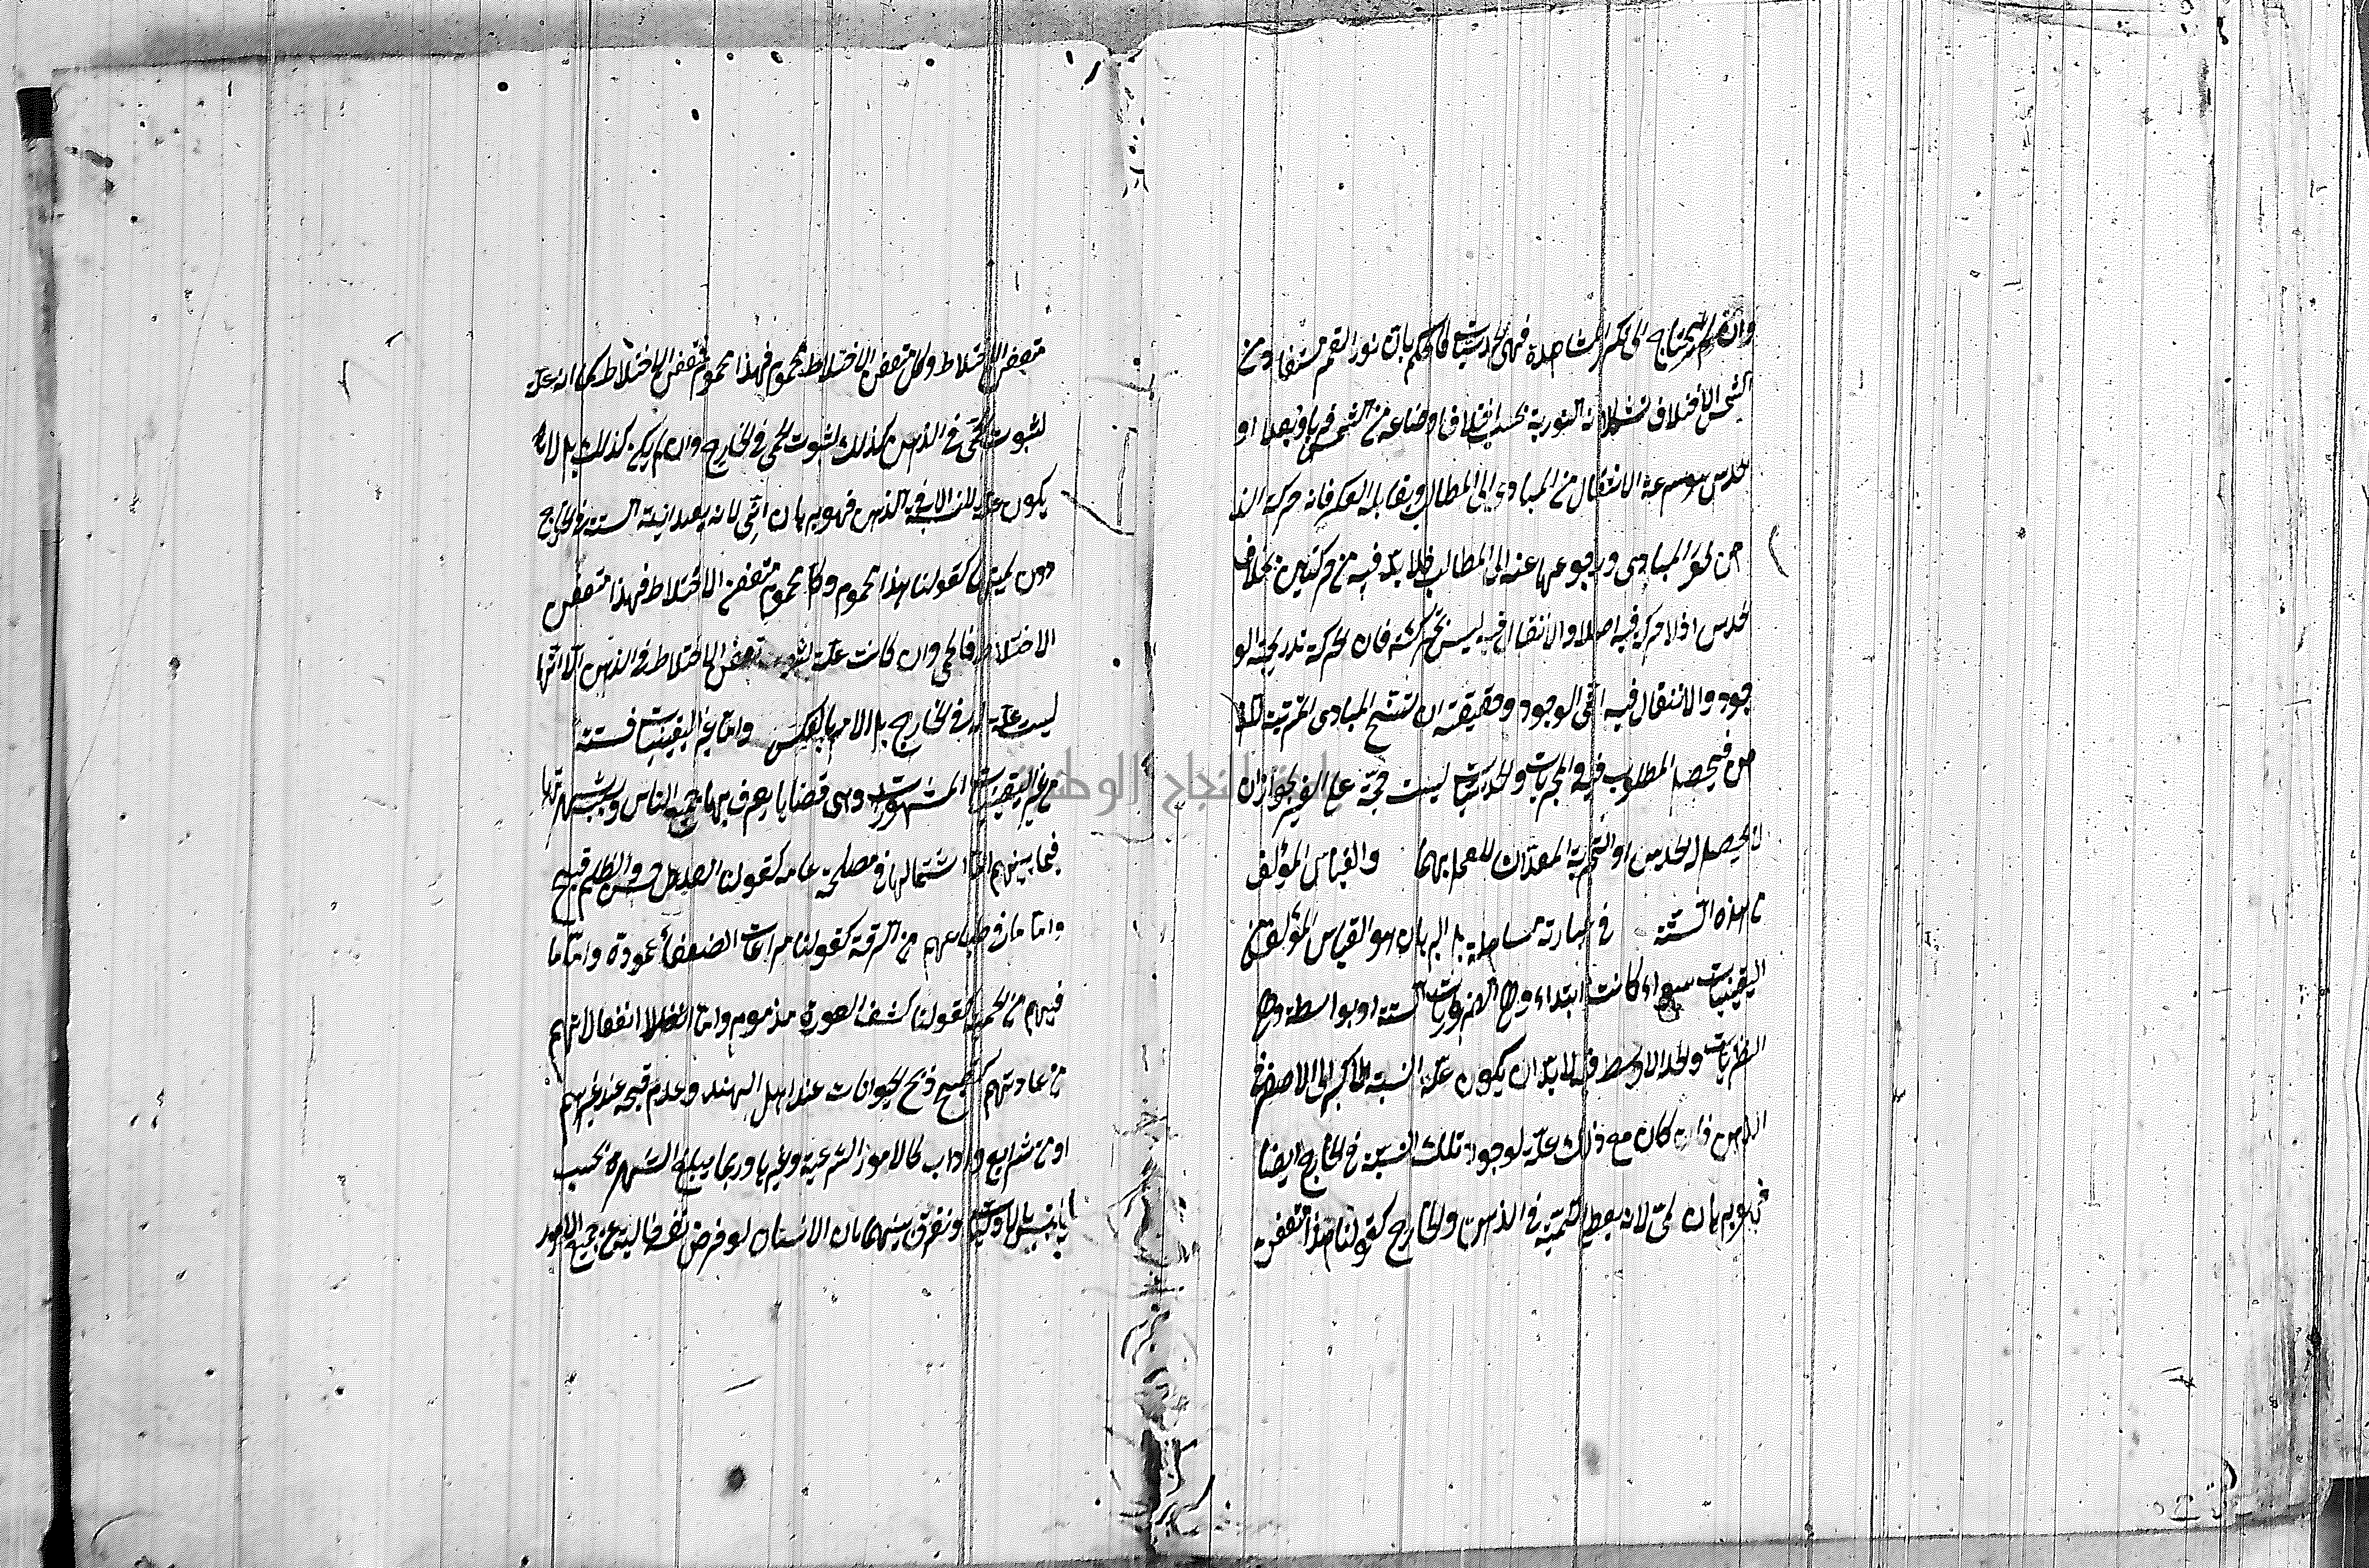 وان لم يحتاج الى تكرر المشاهدة فهى الحدسيات كالحكم بان نور القمر مستفاد من
الشمس لاختلاف تشكلاته النورية بحسب اختلاف اوضاعه من الشمس قربا وبعدا و
الحدس هو سرعة الانتقال من المبادى الى المطالب ويقابله الفكر فانه حركة الذ
هن نحو المبادى ورجوعها عنه الى المطالب فلا بد فيه من حركتين بخلاف
الحدس اذ لا حركة فيه اصلا والانتقال فيه ليس بحركة فان الحركة تدريجية الو
جود والانتقال فيه آنى الوجود وحقيقته ان تسنح المبادى المترتبة للذ
هن فيحصل المطلوب فيه والمجربات والحدسيات ليست حجة على الغير لجواز ان
لا يحصل له الحدس او التجربة المفيدان للعلم بهما والقياس المؤلف
من هذه الستة فى عبارته مساهلة بل البرهان هو القياس المؤلف من
اليقينيات سواء كانت ابتداء وهى الضروريات الستة او بواسطة وهى
النظريات والحد الاوسط فيه لا بد ان يكون علة النسبة الاكبر الى الاصغر فى
الذهن فان كان مع ذلك علة لوجود تلك النسبة فى الخارج ايضا
فهو برهان لمى لانه يعطى اللمية فى الذهن والخارج كقولنا هذا متعفن
متعفن الاختلاط وكل متعفن الاختلاط محموم فهذا محموم فتعفن الاختلاط كما انه علة
لثبوت الحمى فى الذهن كذلك لثبوت الحمى فى الخارج وان لم يكن كذلك بل لا
يكون علة للنسبة الا فى الذهن فهو برهان انى لانه يفيد انية النسبة فى الخارج
دون لميتها كقولنا هذا محموم وكل محموم متعفن الاختلاط فهذا متعفن
الاختلاط فالحمى وان كانت علة لثبوت تعفن الاختلاط فى الذهن الا انها
ليست علة له فى الخارج بل الامر بالعكس واما غير اليقينيات فستة
من غير اليقينيات المشهورات وهى قضايا يعرف بها جميع الناس وسبب شهرتها
فيما بينهم اما اشتمالها فى مصلحة عامه كقولنا العدل حسن والظلم قبيح
واما ما فى طباعهم من الرقة كقولنا مراعات الضعفاء محمودة واما ما
فيهم من الحمية كقولنا كشف العورة مذموم واما انفعالاتهم
من عادتهم كقبح ذبح الحيوانات عند اهل الهند وعدم قبحه عند غيرهم
او من شرايع واداب كالامور الشرعية وغيرها وربما يبلغ الشهرة بحيث
يلتبس بالاوليات ونفرق بينهما بان الانسان لو فرض نفسه خالية عن جميع الامور